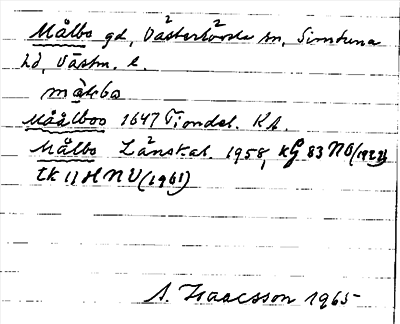 Målbo gd, Västerlövsta sn, Simtuna
hd, Västm. l.
målbo
Måålboo 1647 Tiondel. KA.
Målbo Länskal. 1958, KG 83 NO (1922)
tk 11 H NV (1961)
A. Isaacsson 1965